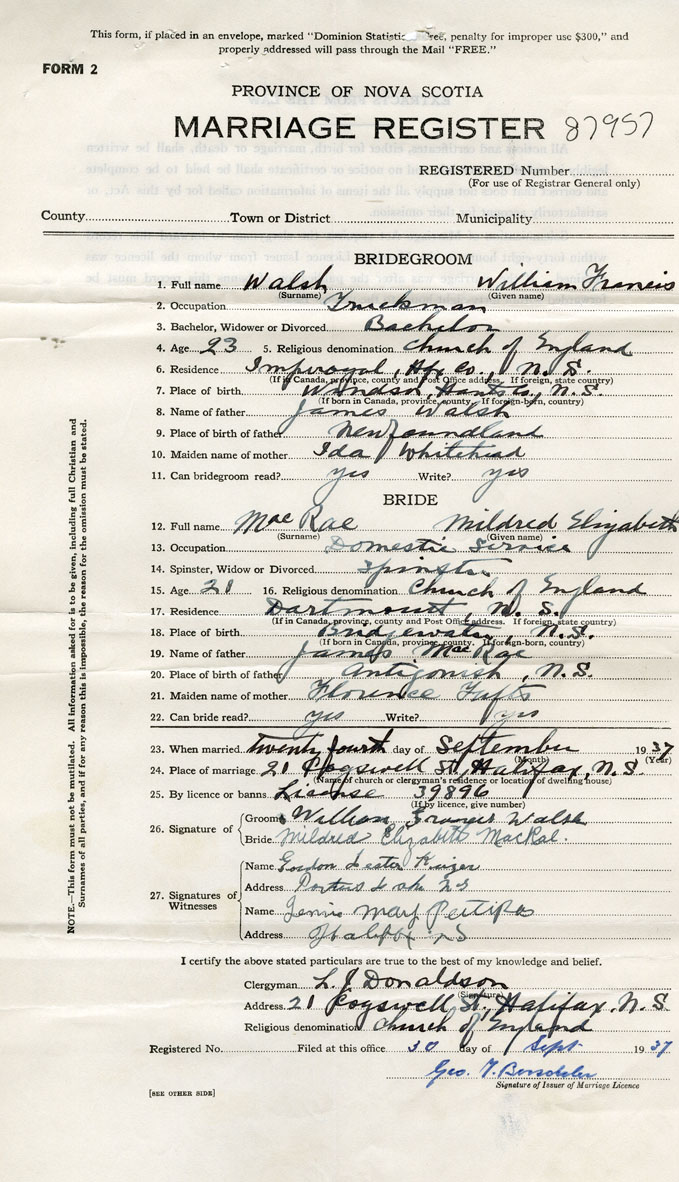 This form, if placed in an envelope, marked "Dominion Statistic Free, penalty for improper use $300," and
properly addressed will pass through the Mail "FREE."
FORM 2
PROVINCE OF NOVA SCOTIA
MARRIAGE REGISTER 87957
REGISTERED Number
(For use of Registrar General only)
County Town or District Municipality
BRIDEGROOM
1. Full name Walsh William Francis
(Surname) (Given name)
2. Occupation Truckman
3. Bachelor, Widower or Divorced Bachelor
4. Age 23 5. Religious denomination Church of England
6. Residence Imperoyal, Hfx Co., N.S.
(If in Canada, province, county and Post Office address. If foreign, state country)
7. Place of birth Windsor, Hants Co., N.S.
(If born in Canada, province, county. If foreign-born, country)
8. Name of father James Walsh
9. Place of birth of father Newfoundland
10. Maiden name of mother Ida Whitehead
11. Can bridegroom read? yes Write? yes
BRIDE
12. Full name MacRae Mildred Elizabeth
(Surname) (Given name)
13. Occupation Domestic Service
14. Spinster, Widow or Divorced Spinster
15. Age 21 16. Religious denomination Church of England
17. Residence Dartmouth, N.S.
(If in Canada, province, county and Post Office address. If foreign, state country)
18. Place of birth Bridgewater, N.S.
(If born in Canada, province, county. If foreign-born, country)
19. Name of father James MacRae
20. Place of birth of father Antigonish, N.S.
21. Maiden name of mother Florence Tufts
22. Can bride read? yes Write? yes
23. When married twenty fourth day of September 1937
(Month) (Year)
24. Place of marriage 21 Cogswell St, Halifax, N.S.
(Name of church or clergyman's residence or location of dwelling house)
25. By licence or banns License 39896
(If by licence, give number)
26. Signature of
Groom William Francis Walsh
Bride Mildred Elizabeth MacRae.
27. Signatures of Witnesses
Name Gordon Lester
Address Porters Lake NS
Name Jennie Mary Pettipas
Address Halifax NS
I certify the above stated particulars are true to the best of my knowledge and belief.
Clergyman L. J. Donaldson
(Signature)
Address 21 Cogswell St, Halifax, N.S
Religious denomination Church of England
Registered No. Filed at this office 30 day of Sept 1937
Geo. T.
Signature of Issuer of Marriage Licence
[SEE OTHER SIDE]
NOTE.—This form must not be mutilated. All information asked for is to be given, including full Christian and
Surnames of all parties, and if for any reason this is impossible, the reason for the omission must be stated.